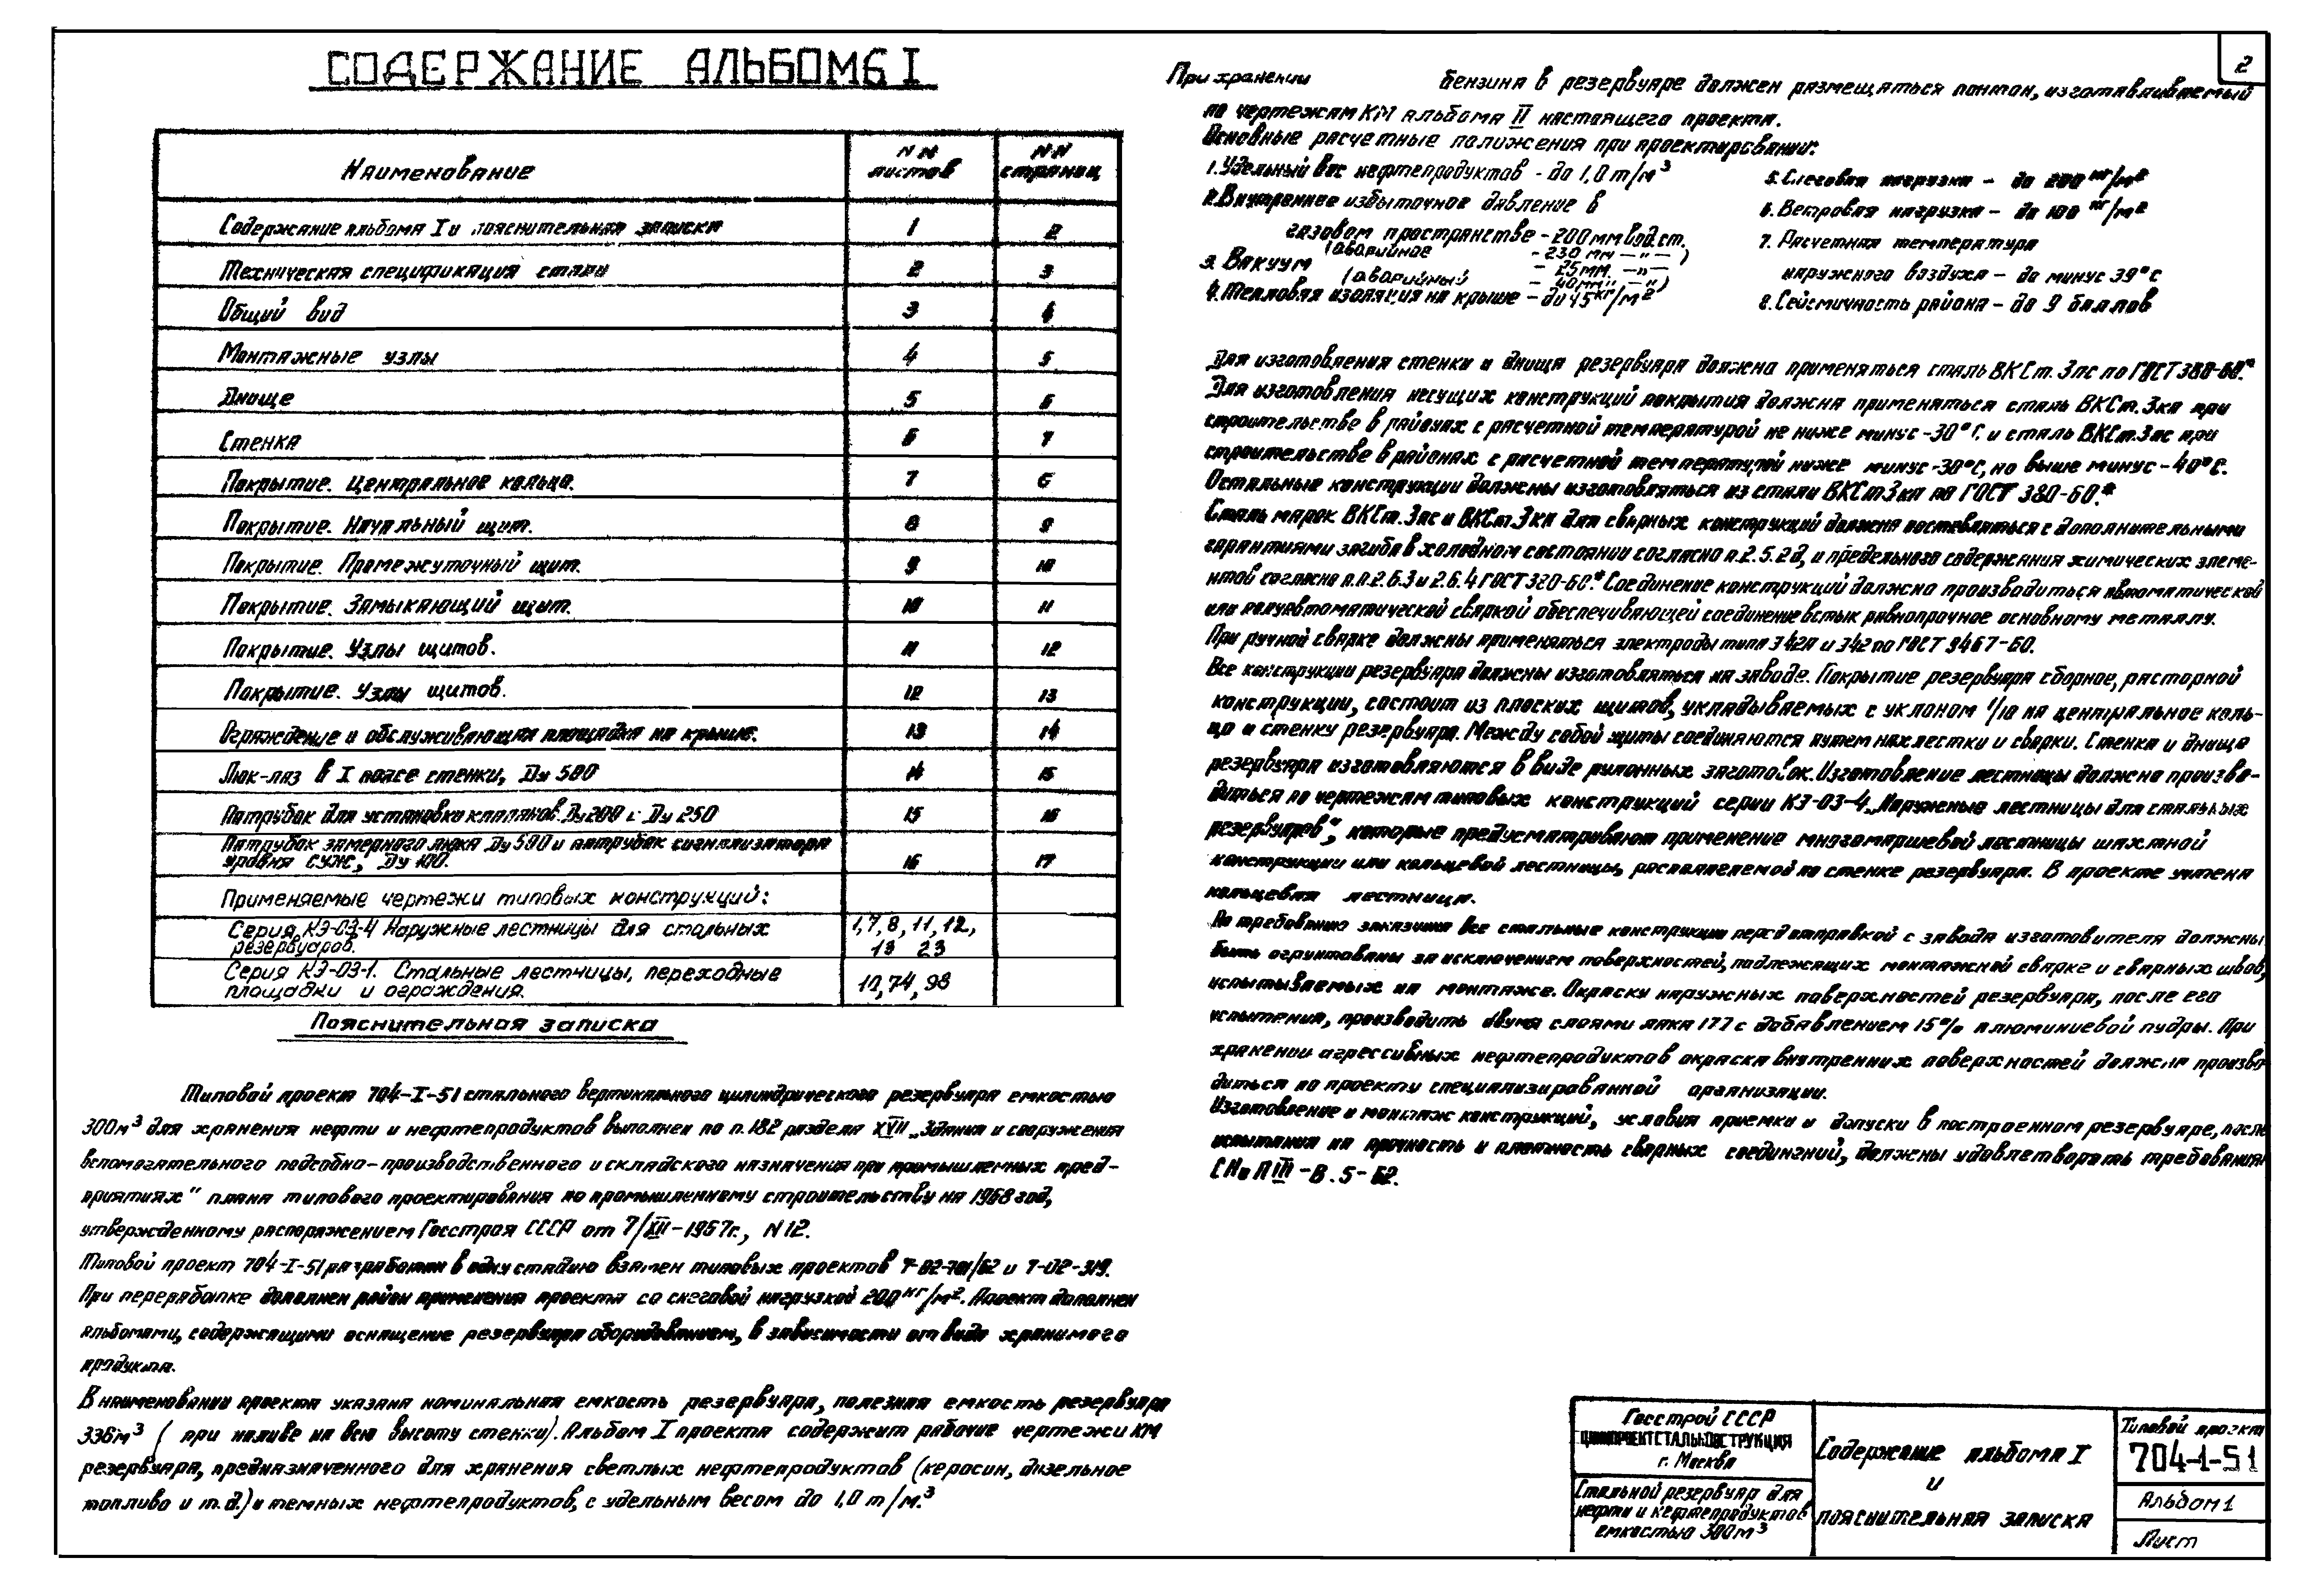 СОДЕРЖАНИЕ АЛЬБОМА I
Наименование | NN листов | NN страниц
Содержание альбома I и пояснительная записка | 1 | 2
Техническая спецификация стали | 2 | 3
Общий вид | 3 | 4
Монтажные узлы | 4 | 5
Днище | 5 | 6
Стенка | 6 | 7
Покрытие. Центральное кольцо. | 7
Покрытие. Начальный щит. | 8 | 9
Покрытие. Промежуточный щит. | 9 | 10
Покрытие. Замыкающий щит. | 10 | 11
Покрытие. Узлы щитов. | 11 | 12
Покрытие. Узлы щитов. | 12 | 13
Ограждение и обслуживающая площадка на крыше. | 13 | 14
Люк-лаз в I поясе стенки, Ду 500 | 14 | 15
Патрубок для установки клапанов Ду200 и Ду 250 | 15 | 16
Патрубок замерного люка Ду 500 и патрубок сигнализатора
уровня СУЖ, Ду 100. | 16 | 17
Применяемые чертежи типовых конструкций:
Серия КЭ-03-4 Наружные лестницы для стальных | 1,7,8,11,12,
резервуаров. | 13 23
Серия КЭ-03-1. Стальные лестницы, переходные
площадки и ограждения. | 11,74,98
Пояснительная записка
Типовой проект 704-I-51 стального вертикального цилиндрического резервуара емкостью
300м³ для хранения нефти и нефтепродуктов выполнен по п.182 раздела XVII „Здания и сооружения
вспомогательного подсобно-производственного и складского назначения при промышленных пред-
приятиях" плана типового проектирования по промышленному строительству на 1968 год,
утвержденному распоряжением Госстроя СССР от 7/XII-1967г., N12.
Типовой проект 704-I-51 разработан в одну стадию взамен типовых проектов 7-02-701/62 и 7-02-319.
При переработке дополнен район применения проекта со снеговой нагрузкой 200 кг/м². Проект дополнен
альбомами, содержащими оснащение резервуара оборудованием, в зависимости от вида хранимого
продукта.
В наименовании проекта указана номинальная емкость резервуара, полезная емкость резервуара
336м³ ( при наливе на всю высоту стенки). Альбом I проекта содержит рабочие чертежи КМ
резервуара, предназначенного для хранения светлых нефтепродуктов (керосин, дизельное
топливо и т.д.) и темных нефтепродуктов, с удельным весом до 1,0 т/м.³
2
При хранении бензина в резервуаре должен размещаться понтон, изготавливаемый
по чертежам КМ альбома II настоящего проекта.
Основные расчетные положения при проектировании:
1. Удельный вес нефтепродуктов - до 1,0 т/м³
2. Внутреннее избыточное давление в
газовом пространстве - 200 мм вод.ст.
(аварийное - 230 мм —„—)
3. Вакуум - 25мм. —„—
(аварийный - 40мм —„)
4. Тепловая изоляция на крыше - до 45 кг/м²
5. Снеговая нагрузка - до 200 кг/м²
6. Ветровая нагрузка - до 100 кг/м²
7. Расчетная температура
наружного воздуха - до минус 39°С
8. Сейсмичность района - до 9 баллов
Для изготовления стенки и днища резервуара должна применяться сталь ВКСт. 3пс по ГОСТ 380-60.*
Для изготовления несущих конструкций покрытия должна применяться сталь ВКСт.3кп при
строительстве в районах с расчетной температурой не ниже минус -30°С. и сталь ВКСт.3пс при
строительстве в районах с расчетной температурой ниже минус -30°С, но выше минус -40°С.
Остальные конструкции должны изготовляться из стали ВКСт3кп по ГОСТ 380-60.*
Сталь марок ВКСт.3пс и ВКСт.3кп для сварных конструкций должна поставляться с дополнительными
гарантиями загиба в холодном состоянии согласно п.2.5.2д, и предельного содержания химических элеме-
нтов согласно п.п.2.6.3 и 2.6.4 ГОСТ 380-60.* Соединение конструкций должно производиться автоматической
или полуавтоматической сваркой обеспечивающей соединение встык равнопрочное основному металлу.
При ручной сварке должны применяться электроды типа Э42А и Э42 по ГОСТ 9467-60.
Все конструкции резервуара должны изготовляться на заводе. Покрытие резервуара сборное, распорной
конструкции, состоит из плоских щитов, укладываемых с уклоном 1/10 на центральное коль-
цо и стенку резервуара. Между собой щиты соединяются путем нахлестки и сварки. Стенка и днище
резервуара изготовляются в виде рулонных заготовок. Изготовление лестницы должно произво-
диться по чертежам типовых конструкций серии КЭ-03-4 „Наружные лестницы для стальных
резервуаров", которые предусматривают применение многомаршевой лестницы шахтной
конструкции или кольцевой лестницы, располагаемой по стенке резервуара. В проекте учтена
кольцевая лестница.
По требованию заказчика все стальные конструкции перед отправкой с завода изготовителя должны
быть огрунтованы за исключением поверхностей, подлежащих монтажной сварке и сварных швов,
испытываемых на монтаже. Окраску наружных поверхностей резервуара, после его
испытания, производить двумя слоями лака 177 с добавлением 15% алюминиевой пудры. При
хранении агрессивных нефтепродуктов окраска внутренних поверхностей должна произво
диться по проекту специализированной организации.
Изготовление и монтаж конструкций, условия приемки и допуски в построенном резервуаре, после
испытания на прочность и плотность сварных соединений, должны удовлетворять требования
СНиП III-В.5-62.
Госстрой СССР
ЦНИИПРОЕКТСТАЛЬКОНСТРУКЦИЯ
г. Москва
Стальной резервуар для
нефти и нефтепродуктов
емкостью 300м³
Содержание альбома I
и
пояснительная записка
Типовой проект
704-1-51
Альбом 1
Лист